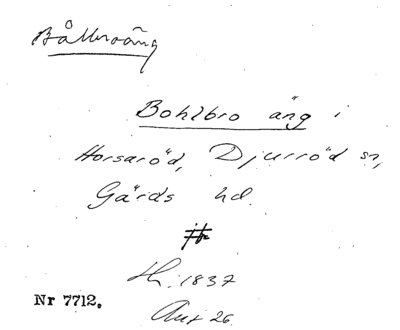 Bållersäng
Bohlbro äng i
Horsaröd, Djurröd sn,
Gärds hd.
Hr. 1837
Nr 7712.
Aut 26